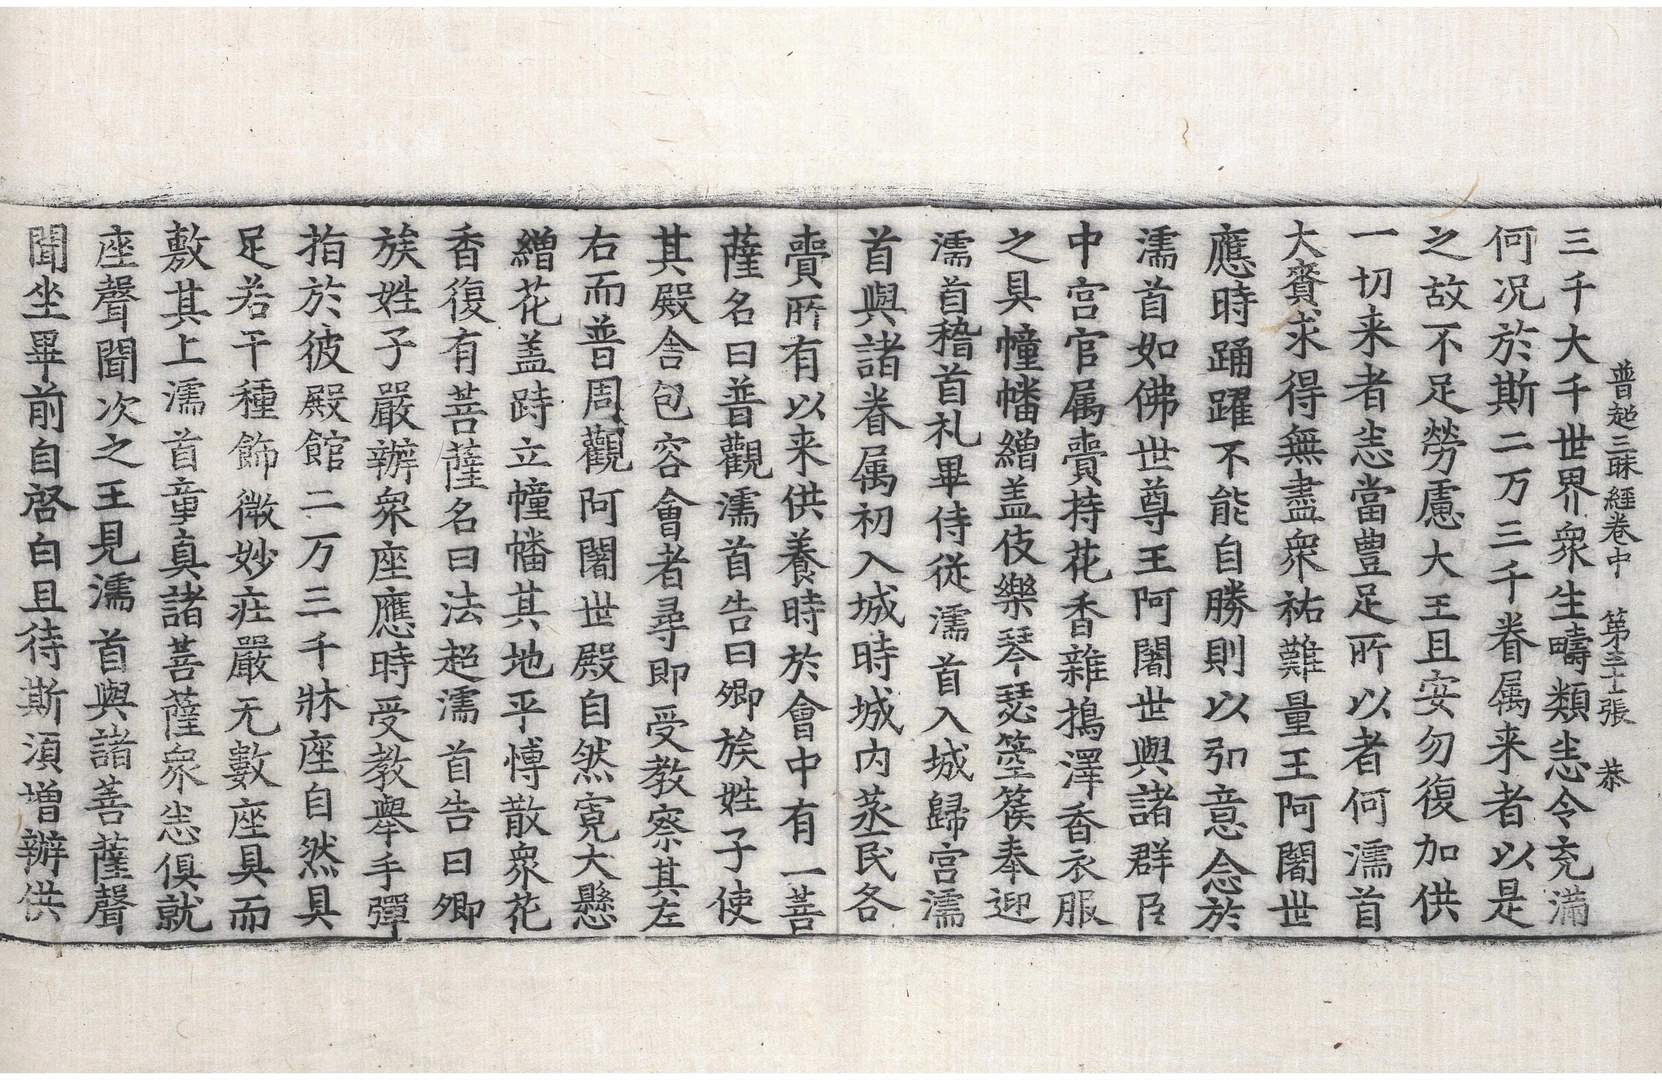 普超三昧經卷中　第三十一張　恭
三千大千世界衆生疇類悉令充滿
何況於斯二万三千眷属来者以是
之故不足勞慮大王且安勿復加供
一切来者悉當豊足所以者何濡首
大賚求得無盡衆祐難量王阿闍世
應時踊躍不能自勝則以弘意念於
濡首如佛世尊王阿闍世與諸群臣
中宮官属賷持花香雜擣澤香衣服
之具幢幡繒盖伎樂琴瑟箜篌奉迎
濡首稽首礼畢侍從濡首入城歸宮濡
首與諸眷属初入城時城内蒸民各
賷所有以来供養時於會中有一菩
薩名曰普觀濡首告曰卿族姓子使
其殿舍包容會者尋即受教察其左
右而普周觀阿闍世殿自然寬大懸
繒花盖跱立幢幡其地平博散衆花
香復有菩薩名曰法超濡首告曰卿
族姓子嚴辦衆座應時受教舉手彈
指於彼殿館二万三千牀座自然具
足若干種飾微妙㽵嚴无數座具而
敷其上濡首童真諸菩薩衆悉俱就
座聲聞次之王見濡首與諸菩薩聲
聞坐畢前自啓白且待斯湏增辦供